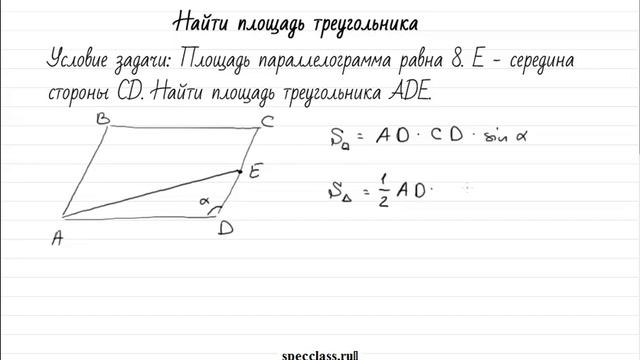 Найти площадь треугольника
Условие задачи: Площадь параллелограмма равна 8. E - середина
стороны CD. Найти площадь треугольника ADE.
B
C
S▱ = AD · CD · sin α
E
S△ = 1/2 AD ·
α
A
D
specclass.ru